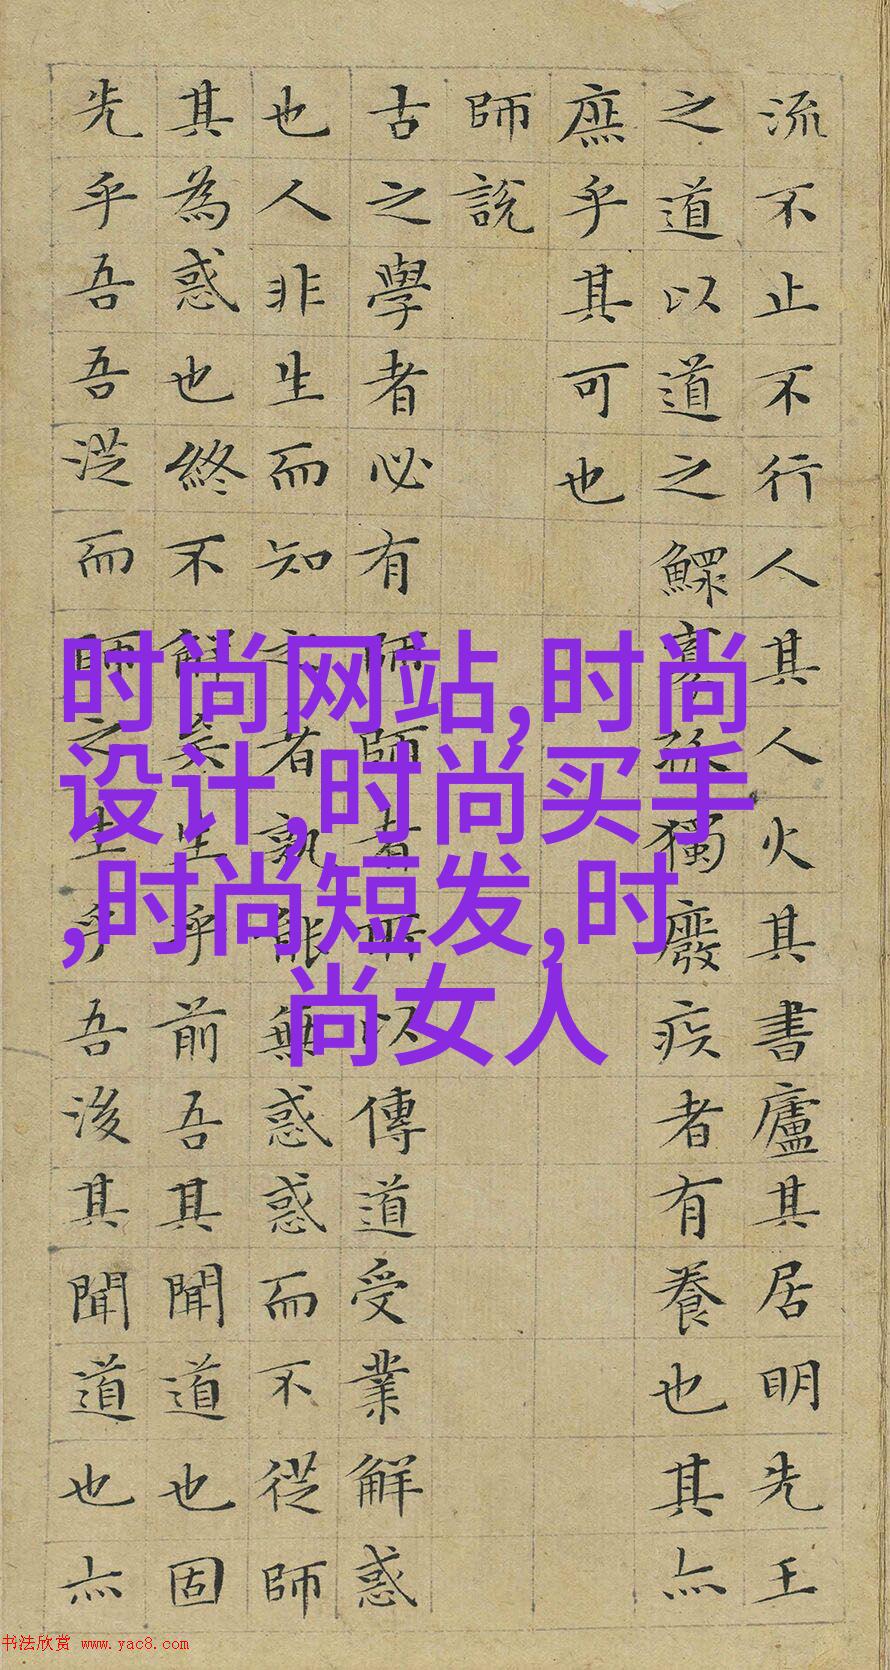 流不止不行人其人火其書廬其居明先王
之道以道之鰥寡孤獨廢疾者有養也其亦
庶乎其可也
師說
古之學者必有師師者所以傳道受業解惑
也人非生而知之者孰能無惑惑而不從師
其為惑也終不解矣生乎前吾其聞道也固
先乎吾吾從而師之生乎吾後其聞道也亦
时尚网站,时尚
设计,时尚买手
,时尚短发,时
尚女人
书法欣赏 www.yac8.com